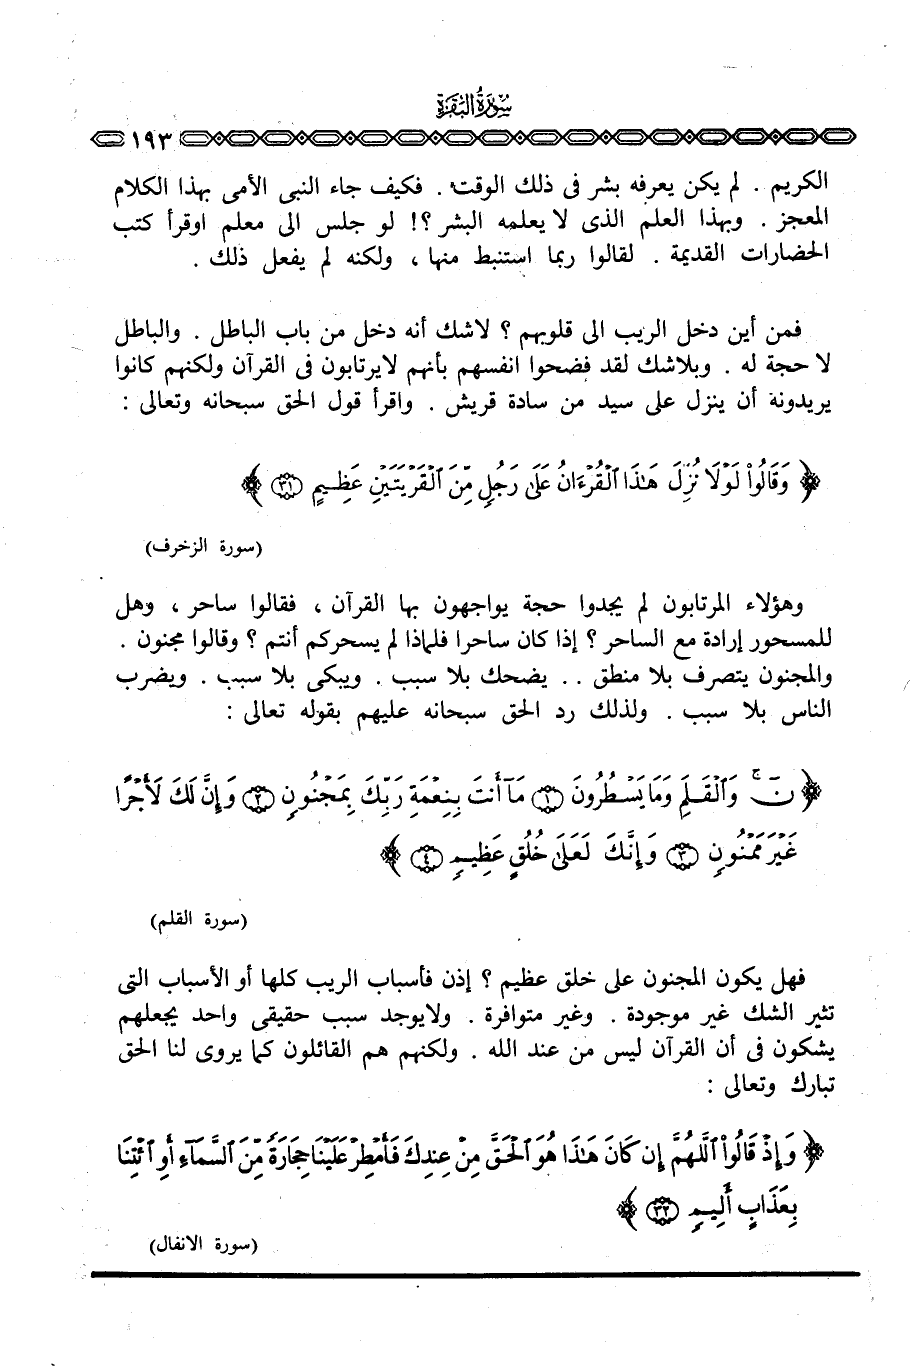 سورة البقرة
١٩٣
الكريم . لم يكن يعرفه بشر فى ذلك الوقت . فكيف جاء النبى الأمى بهذا الكلام
المعجز . وبهذا العلم الذى لا يعلمه البشر ؟! لو جلس الى معلم اوقرأ كتب
الحضارات القديمة . لقالوا ربما استنبط منها ، ولكنه لم يفعل ذلك .
فمن أين دخل الريب الى قلوبهم ؟ لاشك أنه دخل من باب الباطل . والباطل
لا حجة له . وبلاشك لقد فضحوا انفسهم بأنهم لايرتابون فى القرآن ولكنهم كانوا
يريدونه أن ينزل على سيد من سادة قريش . واقرأ قول الحق سبحانه وتعالى :
﴿ وَقَالُوا۟ لَوْلَا نُزِّلَ هَـٰذَا ٱلْقُرْءَانُ عَلَىٰ رَجُلٍ مِّنَ ٱلْقَرْيَتَيْنِ عَظِيمٍ ٣١ ﴾
(سورة الزخرف)
وهؤلاء المرتابون لم يجدوا حجة يواجهون بها القرآن ، فقالوا ساحر ، وهل
للمسحور إرادة مع الساحر ؟ إذا كان ساحرا فلماذا لم يسحركم أنتم ؟ وقالوا مجنون .
والمجنون يتصرف بلا منطق .. يضحك بلا سبب . ويبكى بلا سبب . ويضرب
الناس بلا سبب . ولذلك رد الحق سبحانه عليهم بقوله تعالى :
﴿ نٓ ۚ وَٱلْقَلَمِ وَمَا يَسْطُرُونَ ١ مَآ أَنتَ بِنِعْمَةِ رَبِّكَ بِمَجْنُونٍ ٢ وَإِنَّ لَكَ لَأَجْرًا
غَيْرَ مَمْنُونٍ ٣ وَإِنَّكَ لَعَلَىٰ خُلُقٍ عَظِيمٍ ٤ ﴾
(سورة القلم)
فهل يكون المجنون على خلق عظيم ؟ إذن فأسباب الريب كلها أو الأسباب التى
تثير الشك غير موجودة . وغير متوافرة . ولايوجد سبب حقيقى واحد يجعلهم
يشكون فى أن القرآن ليس من عند الله . ولكنهم هم القائلون كما يروى لنا الحق
تبارك وتعالى :
﴿ وَإِذْ قَالُوا۟ ٱللَّهُمَّ إِن كَانَ هَـٰذَا هُوَ ٱلْحَقَّ مِنْ عِندِكَ فَأَمْطِرْ عَلَيْنَا حِجَارَةً مِّنَ ٱلسَّمَآءِ أَوِ ٱئْتِنَا
بِعَذَابٍ أَلِيمٍ ٣٢ ﴾
(سورة الانفال)